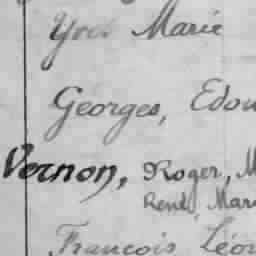 Yves Marie
Georges, Edou
Vernon, Roger, M
René, Mari
François Léon